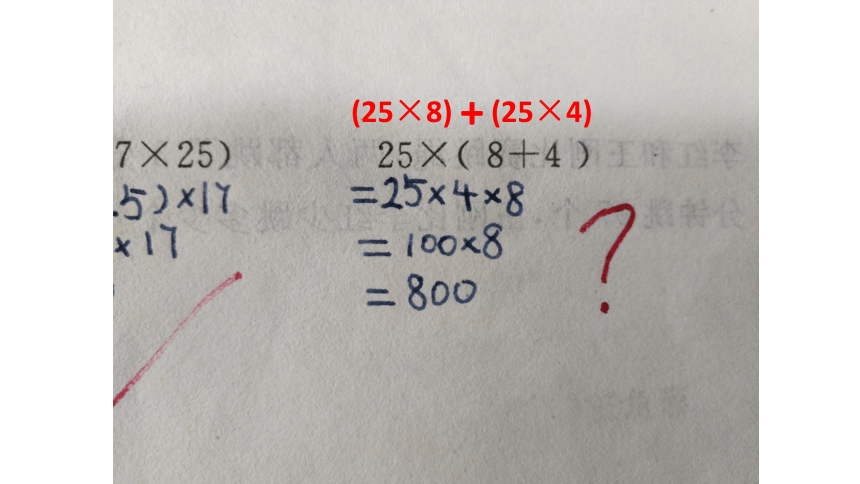 (25×8)+(25×4)
7×25)
25×(8+4)
.5)×17
=25×4×8
×17
=100×8
=800
?